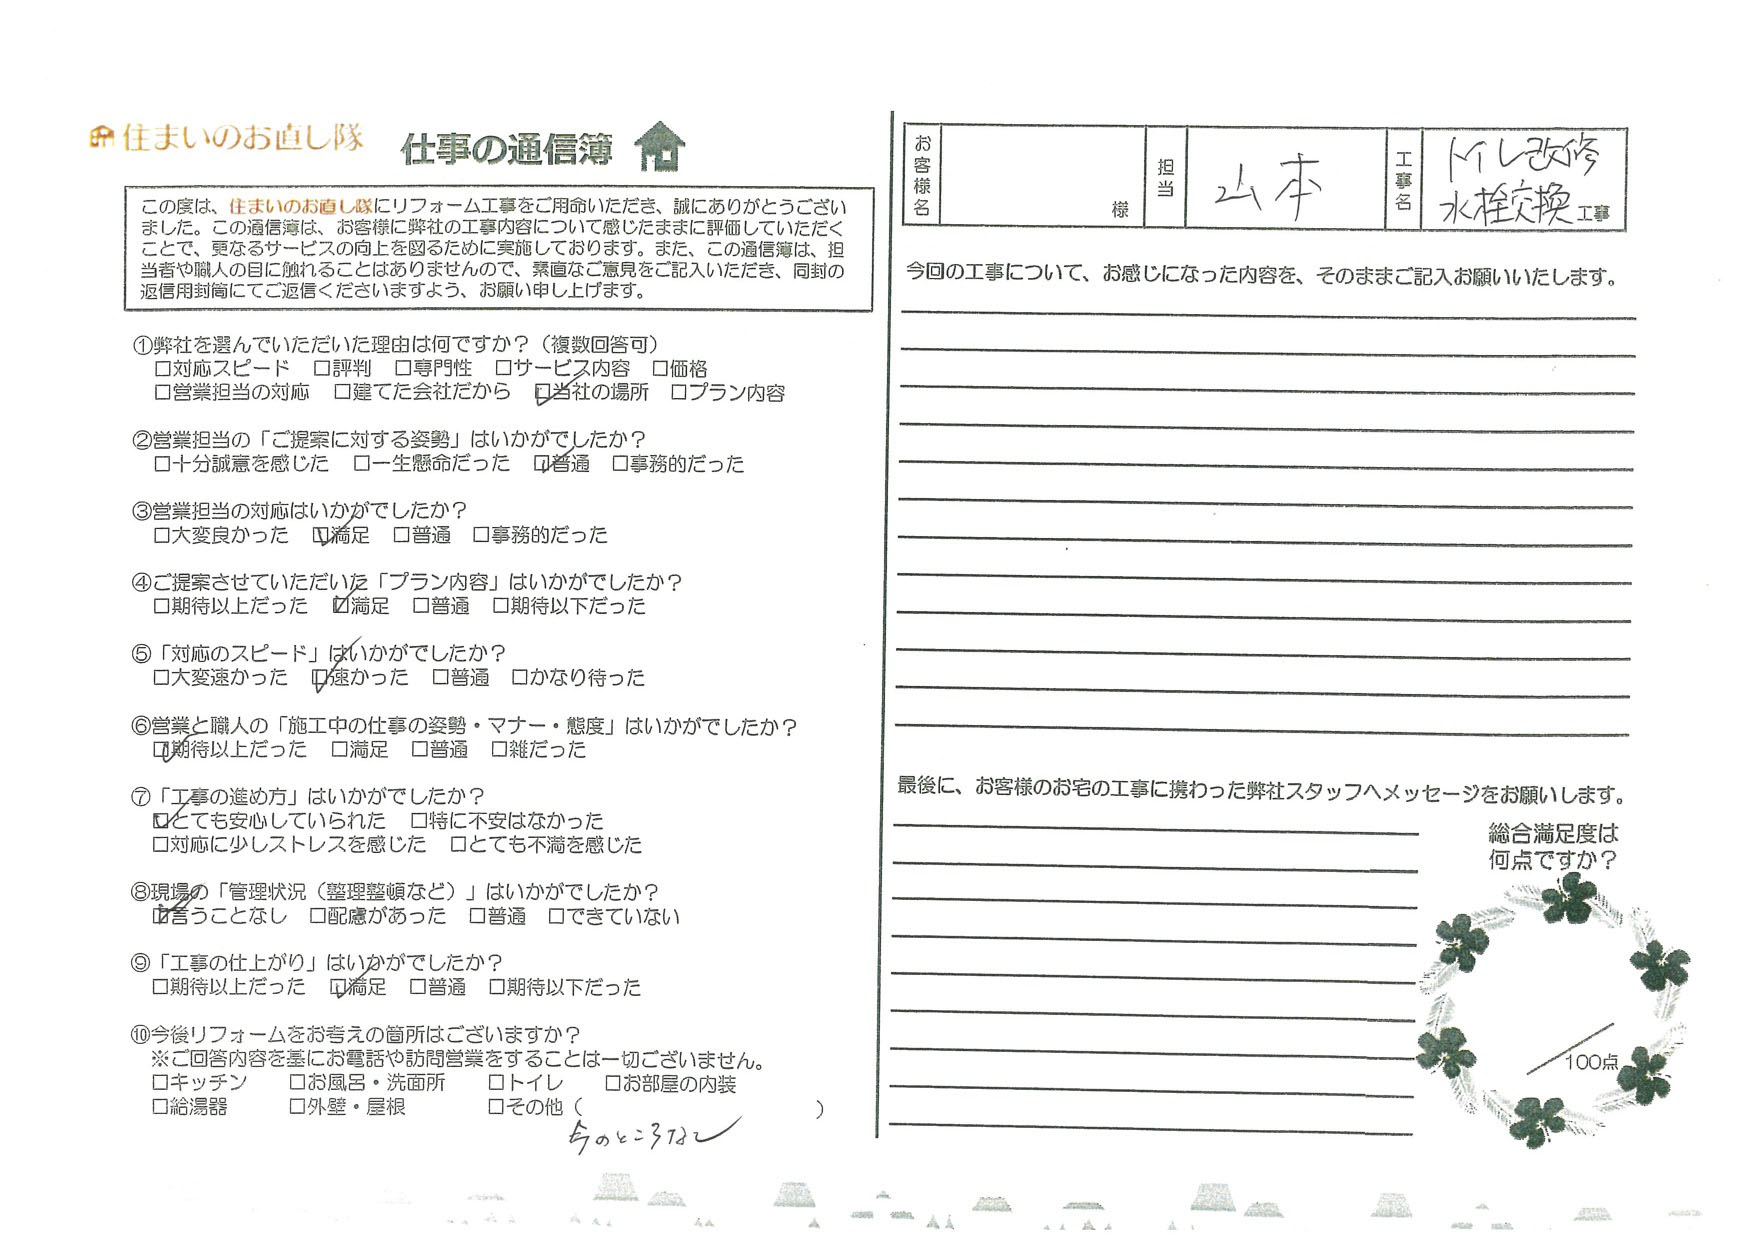 住まいのお直し隊
仕事の通信簿
この度は、住まいのお直し隊にリフォーム工事をご用命いただき、誠にありがとうござい
ました。この通信簿は、お客様に弊社の工事内容について感じたままに評価していただく
ことで、更なるサービスの向上を図るために実施しております。また、この通信簿は、担
当者や職人の目に触れることはありませんので、素直なご意見をご記入いただき、同封の
返信用封筒にてご返信くださいますよう、お願い申し上げます。
①弊社を選んでいただいた理由は何ですか？（複数回答可）
□対応スピード　□評判　□専門性　□サービス内容　□価格
□営業担当の対応　□建てた会社だから　☑当社の場所　□プラン内容
②営業担当の「ご提案に対する姿勢」はいかがでしたか？
□十分誠意を感じた　□一生懸命だった　☑普通　□事務的だった
③営業担当の対応はいかがでしたか？
□大変良かった　☑満足　□普通　□事務的だった
④ご提案させていただいた「プラン内容」はいかがでしたか？
□期待以上だった　☑満足　□普通　□期待以下だった
⑤「対応のスピード」はいかがでしたか？
□大変速かった　☑速かった　□普通　□かなり待った
⑥営業と職人の「施工中の仕事の姿勢・マナー・態度」はいかがでしたか？
☑期待以上だった　□満足　□普通　□雑だった
⑦「工事の進め方」はいかがでしたか？
☑とても安心していられた　□特に不安はなかった
□対応に少しストレスを感じた　□とても不満を感じた
⑧現場の「管理状況（整理整頓など）」はいかがでしたか？
☑言うことなし　□配慮があった　□普通　□できていない
⑨「工事の仕上がり」はいかがでしたか？
□期待以上だった　☑満足　□普通　□期待以下だった
⑩今後リフォームをお考えの箇所はございますか？
※ご回答内容を基にお電話や訪問営業をすることは一切ございません。
□キッチン　□お風呂・洗面所　□トイレ　□お部屋の内装
□給湯器　□外壁・屋根　□その他（　　　）
今のところなし
お客様名　様　担当　山本　工事名　トイレ改修
水栓交換工事
今回の工事について、お感じになった内容を、そのままご記入お願いいたします。
最後に、お客様のお宅の工事に携わった弊社スタッフへメッセージをお願いします。
総合満足度は
何点ですか？
／100点